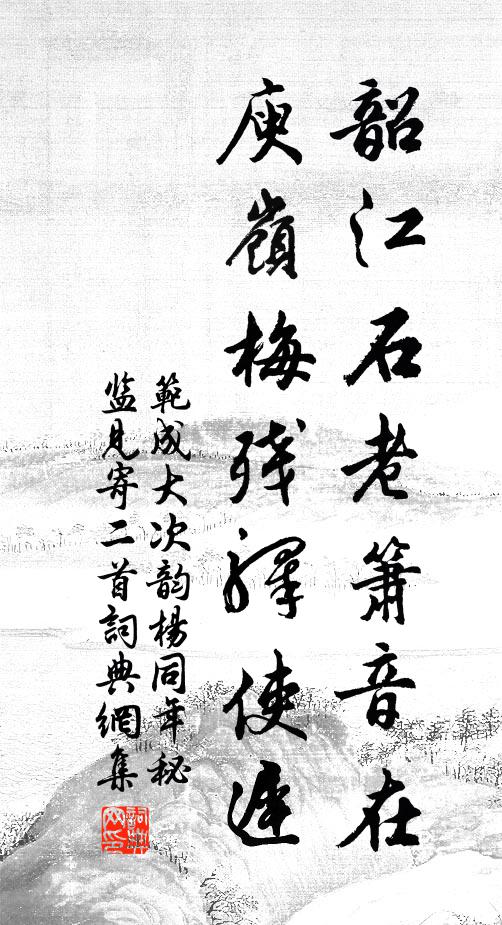 韶江石老簫音在
庾嶺梅殘驛使遲
範成大次韵楊同年秘
監見寄二首詞典網集